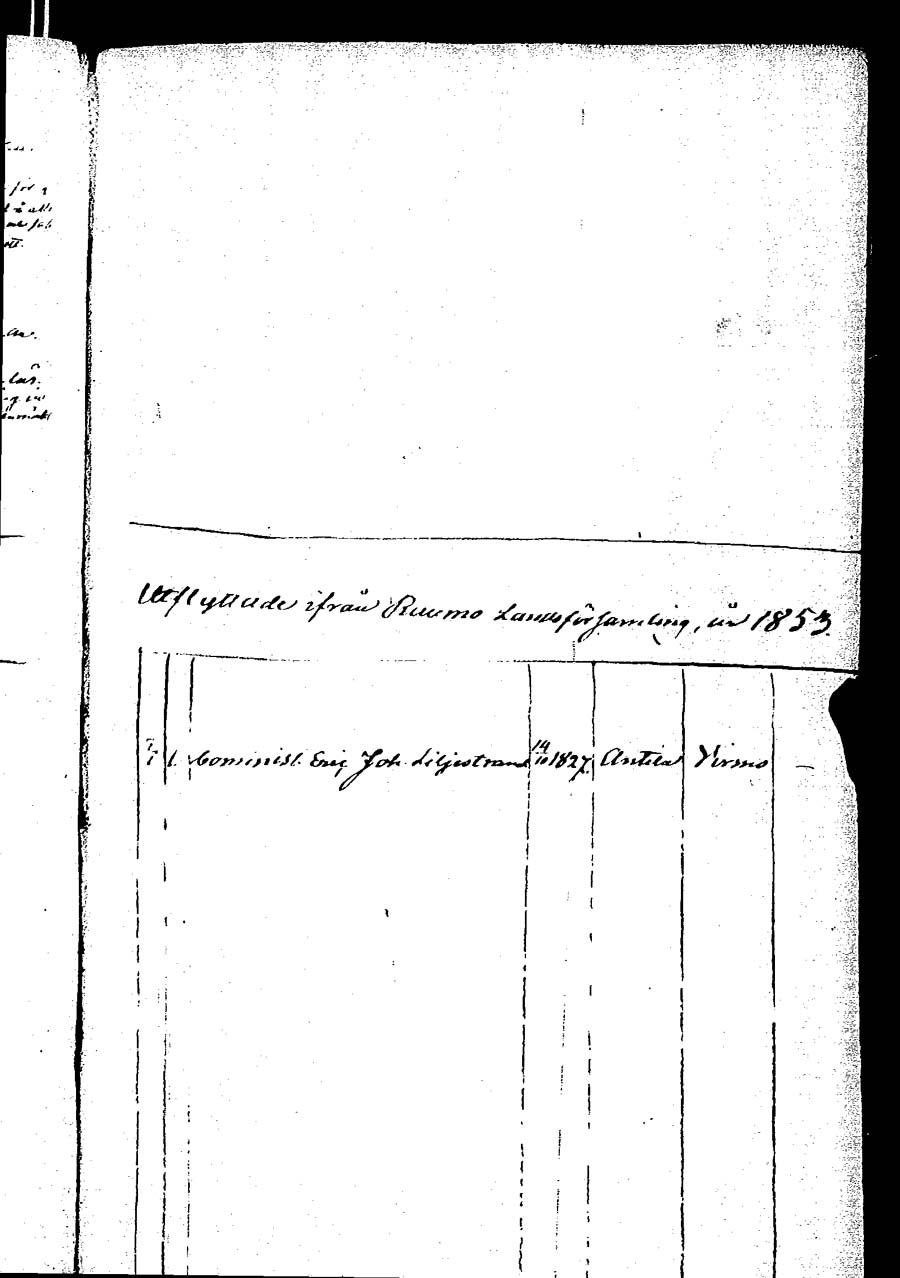 för
Utflyttade ifrån Raumo Landsförsamling, år 1853.
7/7 1. Cominist. Eric Joh. Liljestrand 14/10 1827. Antila Virmo —